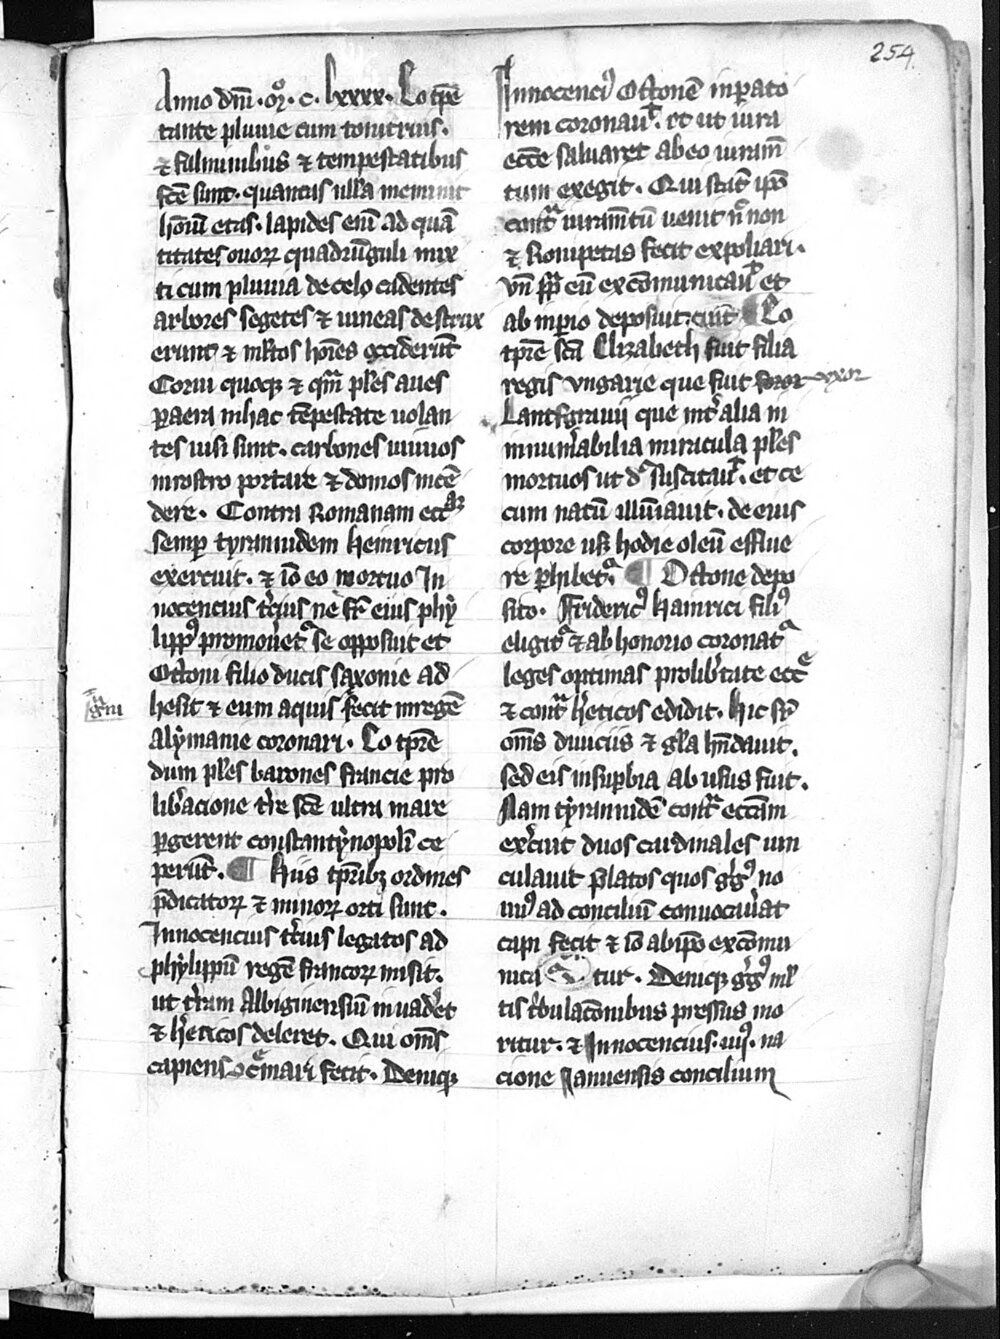 254
Anno dn̄i · mͦ · c · lxxxx · Eo tp̄e
tante pluuie cum tonitruis .
⁊ fulminibus ⁊ tempestatibus
fc̄e sunt · quantas ulla meminit
hom̄ū etas · lapides enī ad quā
titates ouoꝝ quadrūguli mix
ti cum pluuia de celo cadentes
arbores segetes ⁊ uineas destrux
erunt ⁊ ml̄tos hoīes occiderūt
Corui quoqꝫ ⁊ qm̄ pl̄es aues
ꝑ aera in hac tēpestate uolan
tes uisi sunt · carbones uiuos
in rostro portare ⁊ domos incē
dere · Contra Romanam ecc̄aꝫ
semꝑ tyrannidem Heinricus
exercuit · ⁊ iō eo mortuo In
nocencius t̄cius ne fr̄ eius phy
lippꝰ promoūet᷑ se opposuit et
Ottoni filio ducis saxonie ad
hesit ⁊ eum aquis fecit in regē
Alymanie coronari · Eo tp̄re
dum pl̄es barones francie pro
lib̄acione t̄re sc̄e ultra mare
ꝑgerent constantynopolī ce
perūt . ¶ Hiis tp̄ribꝫ ordines
p̄dicatoꝝ ⁊ minoꝝ orti sunt .
Innocencius t̄cius legatos ad
phylippū regē francoꝝ misit ·
ut t̄ram Albiginensiū inuad̄et
⁊ h̄eticos deleret · Qui om̄s
capiens c̄mari fecit · Deniqꝫ
Innocenciꝰ Ottonē inꝑato
rem coronauit · et ut iura
ecc̄e saluaret ab eo iuram̄
tum exegit · Qui statī ip̄o
cont᷑ iuram̄tū uenit n̄o non
⁊ Romipetas fecit expoliari ·
vn̄ pp̄ eū excōmunicauit et
ab inꝑio deposuit · ¶ Eo
tp̄re sc̄a Elizabeth fuit filia
regis vngarie que fuit soror uxor
Lantfgrauii que int̄ alia in
innum̄abilia miracula pl̄es
mortuos ut d᷑ suscitauit · et ce
cum natū illūiauit · de cuius
corpore usꝫ hodie oleū efflue
re ꝑhibet᷑ . ¶ Ottone depo
sito · Fridericꝰ Hainrici filiꝰ
eligit᷑ ⁊ ab honorio coronat᷑
leges optimas pro lib̄tate ecc̄e
⁊ cont᷑ h̄eticos edidit · Hic sr̄
om̄s diuiciis ⁊ gl̄a hn̄dauit .
sed eis in suꝑbia abusus fuit .
Nam tyrannidē cont᷑ ecc̄am
ex̄cuit duos cardinales uin
culauit p̄latos quos g̓gꝰ no
nꝰ ad conciliū conuocau̓at
capi fecit ⁊ iō ab ip̄o excōmu
nica tur · Deniqꝫ g̓gꝰ ml̄
tis t̄bulac̄onibus pressus mo
ritur · ⁊ Innocencius · iiijꝰ · na
cione Ianuensis concilium